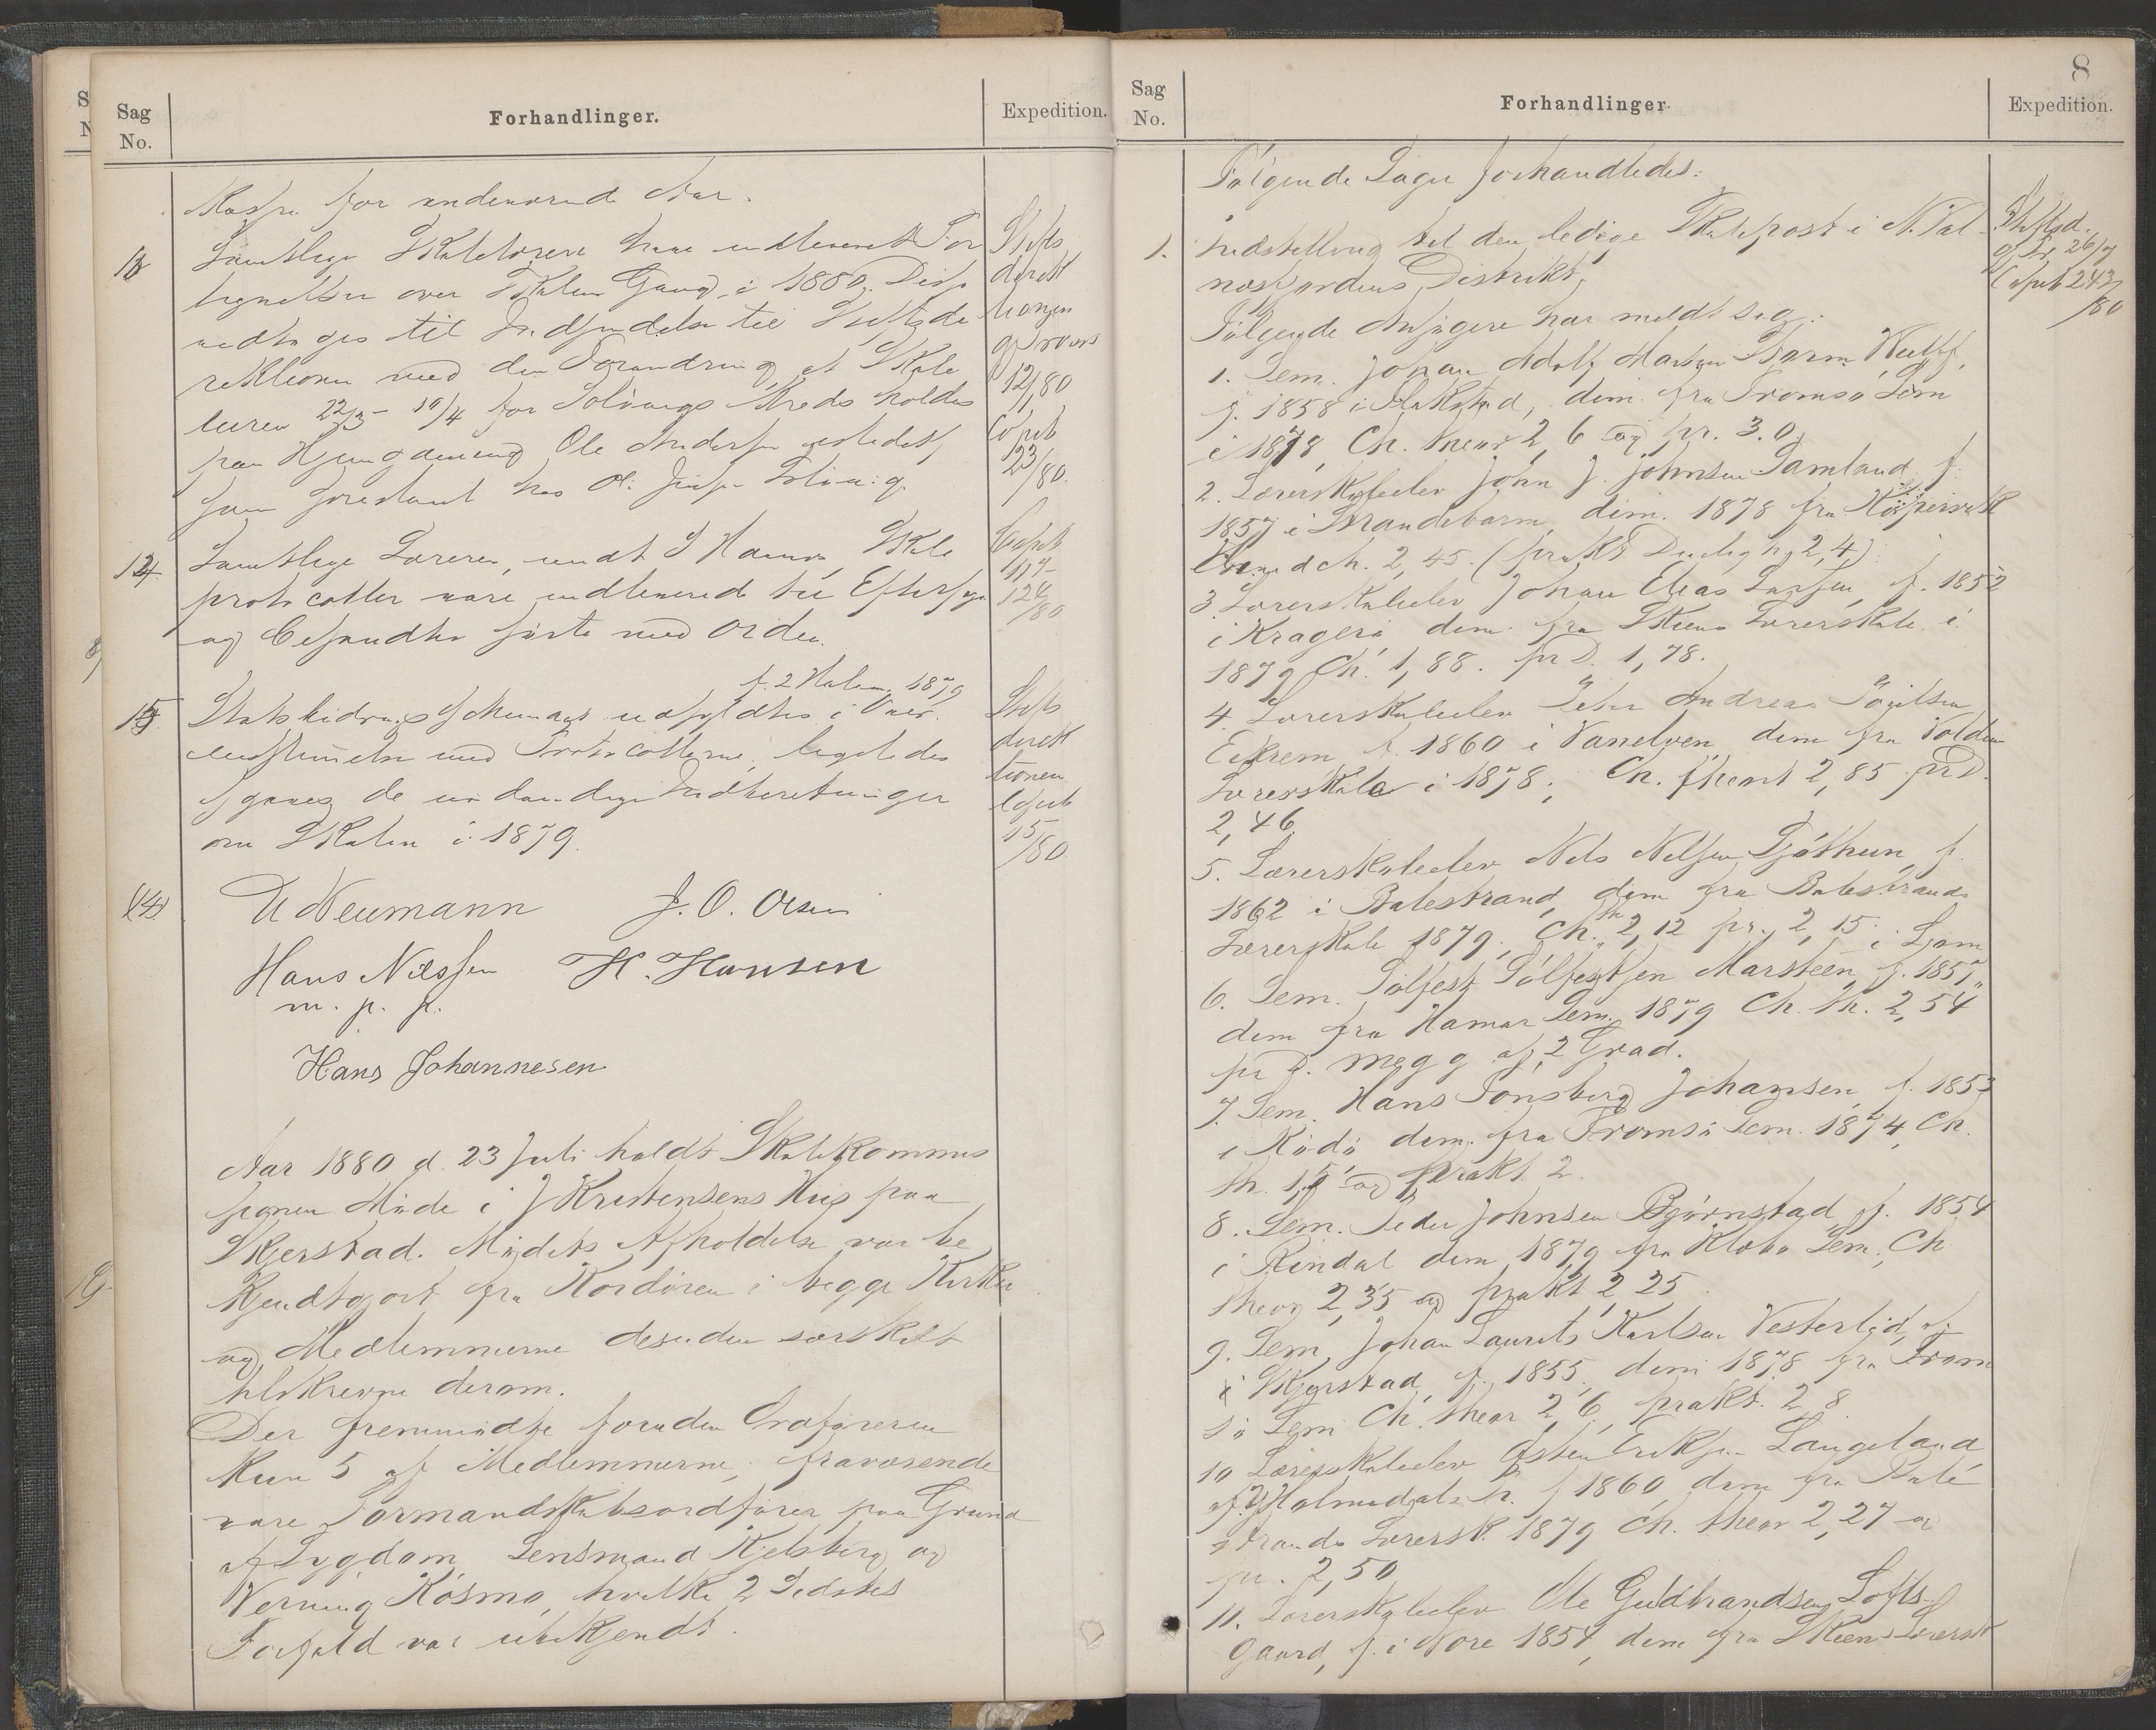 Sag
No.
Forhandlinger.
Expedition.
for indeværende Aar.
13
Samtlige Skolelærere have indleveret For
tegnelser over Skolens Gang i 1880. Disse
vedtoges til Indsendelse til Stiftsdi
rektionen med den Forandring at Skole
turen 22/3 - 10/4 for Solvaags Kreds holdes
paa Ole Andersen istedet
som hos
Stifts
direkt
tionen
12/80
Copieb
23/80.
14
Samtlige Lærere, undt. Skole
protocoller vare indleverede til Eftersyn
og befandtes førte med Orden.
Copieb
124/80
15
f. 2 1879
Skemaer udfyldtes i Over
ensstemmelse med Protocollerne, ligeledes
afgaves de Indberetninger
om Skolen i 1879.
Stifts
direkt
tionen
Copieb
15/80
(14)
U Neumann J. O. Olsen
Hans Nilssen H. Hansen
m. p. p.
Hans Johannesen
Aar 1880 d. 23 Juli holdt Skolekommis
sionen Møde i J Kristensens Hus paa
Skjerstad. Mødets Afholdelse var be
kjendtgjort fra Kordøren i begge Kirker
og Medlemmerne desuden særskilt
tilskrevne derom.
Der fremmødte foruden Ordføreren
kun 5 af Medlemmerne; fraværende
vare Formandskabsordfører paa Grund
af Sygdom, Lensmand Kjelsberg og
Verning Kosmo, hvilke 2 Sidstes
Forfald var ubekjendt.
8
Sag
No.
Forhandlinger.
Expedition.
Følgende Sager forhandledes:
1.
Indstilling til den ledige Skolepost i N. Val-
nesfjordens Distrikt.
Stiftsd.
26/7
Copieb 243
/80
Følgende Ansøgere har meldt sig:
1. Sem. Johan Adolf Storm
f. 1858 i Flakstad, dim. fra Tromsø Sem
i 1878, Ch. theor 2,6 og pr. 3.0.
2. Lærerskoleelev John J. Johnsen Samland f.
1857 i Strandebarm, dim. 1878 fra Kopervik
ch. 2,45. (prakt Duelighd 2,4)
3 Lærerskoleelev Johan Elias Larsen, f. 1852
i Kragerø, dim. fra Skiens Lærerskole i
1879 Ch. 1,88. pr D. 1,78.
4 Lærerskoleelev Peter Andreas
Eikrem f. 1860 i Vanelven dim fra Volden
Lærerskole i 1878; Ch. theort 2,85 pr D.
2,46
5. Lærerskoleelev Nils Nilsen Tjøthun, f.
1862 i Balestrand, dim fra Balestrands
Lærerskole 1879, Ch. th 2,12 pr. 2,15.
6. Sem. Sølfest Sølfestsen Marsteen, f. 1857 i Lom
dim fra Hamar Sem. 1879 Ch. th. 2,54
pr D. meg g af 2 Grad.
7. Sem. Hans Tønsberg Johansen, f. 1853
i Rødø dim. fra Tromsø Sem. 1874, Ch.
th. 1,5 og prakt. 2.
8. Sem. Peder Johnsen Bjørnstad, f. 1854
i Rindal dim 1879 fra Klæbo Sem., Ch
theor 2,35 og prakt 2,25.
9. Sem. Johan Laurits Karlsen Vesterlid, af
i Skjerstad, f. 1855, dim 1878 fra Trom
sø Sem Ch. theor 2,6, prakt. 2,8
10 Lærerskoleelev Østen Eriksen Langeland
af Y. Holmedals P. f 1860 dim fra Bale
strands Lærersk. 1879 Ch. theor 2,27 og
pr. 2,50
11. Lærerskoleelev Ole Gudbrandsen Lofts-
gaard, f. i Nore 1854, dim fra Skiens Lærersk